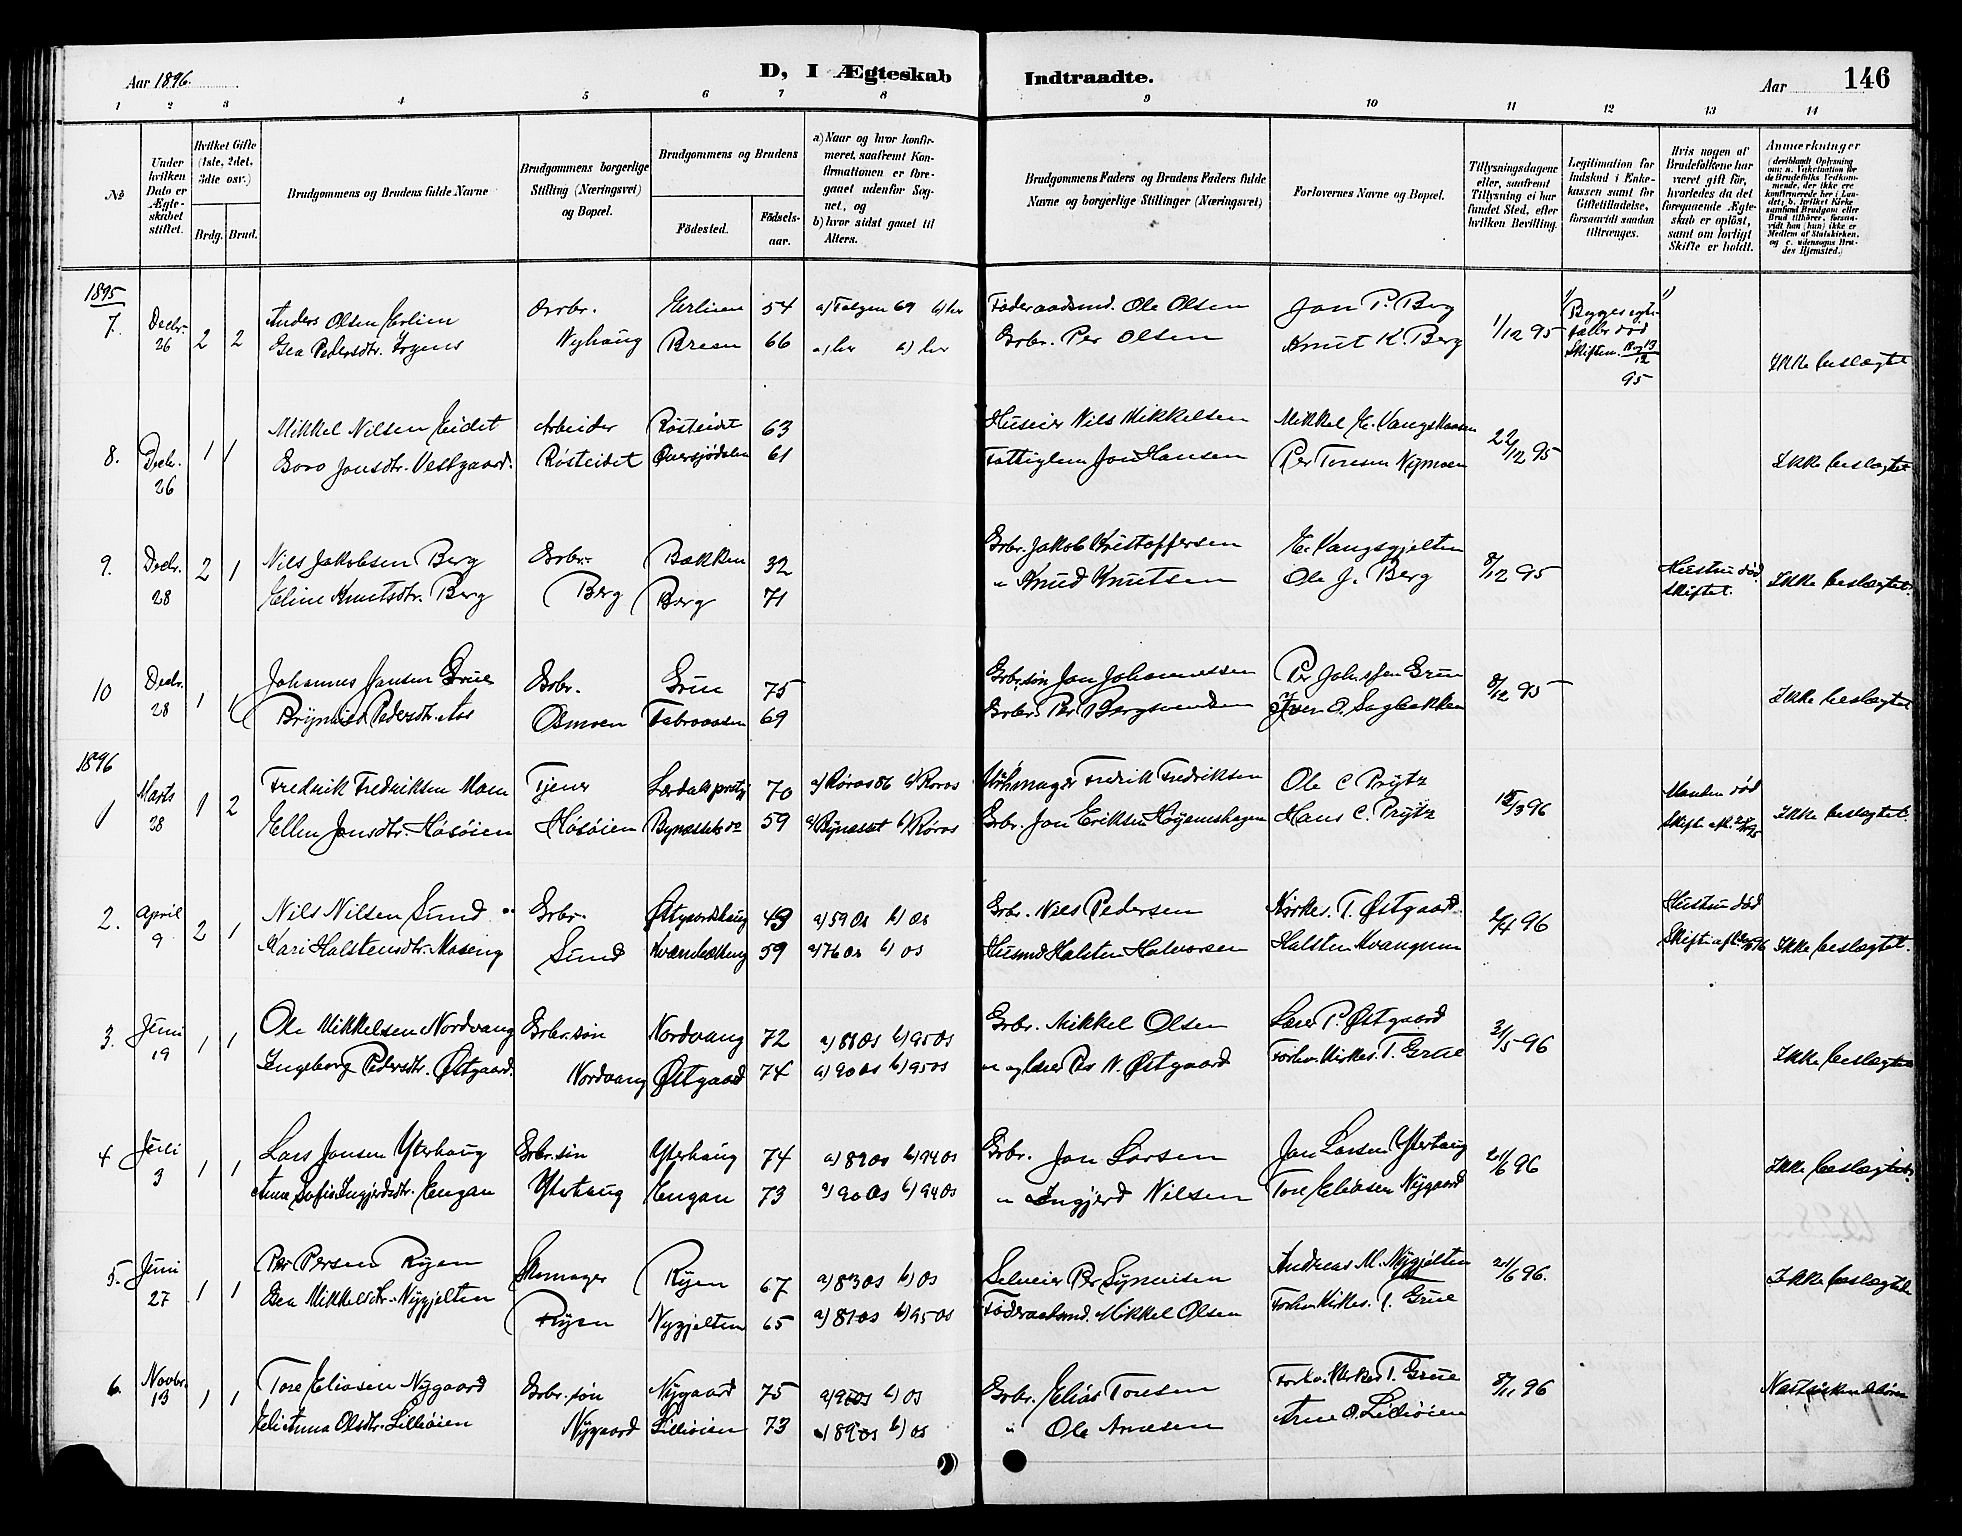 Aar 1896.
D, I Ægteskab Indtraadte.
Aar 146
1 2 3 4 5 6 7 8 9 10 11 12 13 14
No
Under hvilken Dato er Ægteskabet stiftet.
Hvilket Gifte (1ste, 2det, 3die osv.)
Brdg. Brud.
Brudgommens og Brudens fulde Navne
Brudgommens borgerlige Stilling (Næringsvei) og Bopæl.
Brudgommens og Brudens
Födested.
Fødsels-aar.
a) Naar og hvor konfirmeret, saafremt Konfirmationen er foregaaet udenfor Sognet, og
b) hvor sidst gaaet til Alters.
Brudgommens Faders og Brudens Faders fulde Navne og borgerlige Stillinger (Næringsvei)
Forlovernes Navne og Bopæl.
Tillysningsdagene eller, saafremt Tillysning ei har fundet Sted, efter hvilken Bevilling.
Legitimation for Indskud i Enkekassen samt for Giftetilladelse, forsaavidt saadan tiltrænges.
Hvis nogen af Brudefolkene har været gift før, hvorledes da det foregaaende Ægteskab er opløst, samt om lovligt Skifte er holdt.
Anmærkninger
1895
7. Decbr. 26 2 2 Anders Olsen Erlien Grbr. Erlien 54 Føderaadsmd. Ole Olsen Jon P. Berg 1/12 95
Gea Pedersdtr. Nyhaug Breen 66 Grbr. Per Olsen Knut K. Berg Ikke beslægtet
8. Decbr. 26 1 1 Mikkel Nilsen Eidet Arbeider Røsteidet 63 Huseier Nils Mikkelsen 22/12 95
Jonsdtr. Vestgaard. Røsteidet 61 Jon Hansen Per Toresen Nymoen Ikke beslægtet
9. Decbr. 28 2 1 Nils Jakobsen Berg Grbr. Bakken 32 Grbr. Jakob Kristoffersen E. Vangsgjelten 8/12 95 Hustru død.
Eline Knutsdtr. Berg Berg Berg 71 " Knud Knutsen Ole J. Berg skiftet. Ikke beslægtet.
10 Decbr. 28 1 1 Johannes Jonsen Grue Grbr. Grue 75 Grbr.søn Jon Johannessen Per Grue 8/12 95
Brynhild Pedersdtr. Aas Osmoen 69 Grbr. Per Iver O. Sagbakken Ikke beslegtet
1896
1 Marts 28 1 2 Fredrik Fredriksen Moen Tjener 70 a) Røros 86 b) Røros Uhrmager Fredrik Fredriksen Ole C Prytz 15/3 96 Manden død
Ellen Jonsdtr. Høsøien Høsøien 59 a) Bynæsset b) Røros Grbr. Jon Eriksen Hans C. Prytz Ikke beslægtet.
2. April 9 2 1 Nils Nilsen Sund Grbr. Østgaardshaug 43 a) 59 Os b) Os Grbr. Nils Pedersen Kirkes. T. Østgaard. 2/4 96 Hustru død
Kari Halstensdtr. Moseng Sund 59 a) 76 Os b) Os Husmd Halsten Halvorsen Halsten Ikke beslægtet.
3. Juni 19 1 1 Ole Mikkelsen Nordvang Grbr.søn Nordvang 72 b) 95 Os Grbr. Mikkel Olsen Lærer P. Østgaard 31/5 96
Ingeborg Pedersdtr. Østgaard. Nordvang Østgaard 74 a) 90 Os b) 95 Os " og lærer Per N. Østgaard Forhv. Kirkes. T. Grue Ikke beslægtet
4 Juli 3 1 1 Lars Jonsen Ytterhaug Grbr.søn Ytterhaug 74 a) 89 Os b) 94 Os Grbr. Jon Larsen Jon Larsen Ytterhaug 21/6 96
Anna Sofie Ingjerdsdtr. Engan Ytterhaug Engan 73 a) 90 Os b) 94 Os " Ingjerd Nilsen Tore Eliasen Nygaard Ikke beslægtet.
5. Juni 27 1 1 Per Persen Ryen Skomager Ryen 67 a) 83 Os b) Os Selveier Per Andreas M. Nygjelten 21/6 96.
Gea Mikkelsdtr. Nygjelten Ryen Nygjelten 65 b) 95 Os Føderaadsmd. Mikkel Olsen Forhv. Kirkes. T. Grue Ikke beslægtede
6. Novbr. 13 1 1 Tore Eliasen Nygaard Grbr.søn Nygaard 75 a) 90 Os b) Os Grbr. Elias Toresen Forhv. Kirkes. T. Grue 8/11 96
Anna Olsdtr. Lilleøien Nygaard Lilleøien 73 a) 89 Os b) Os " Ole Arnesen Arne O. Lilleøien Næstsøskendebørn